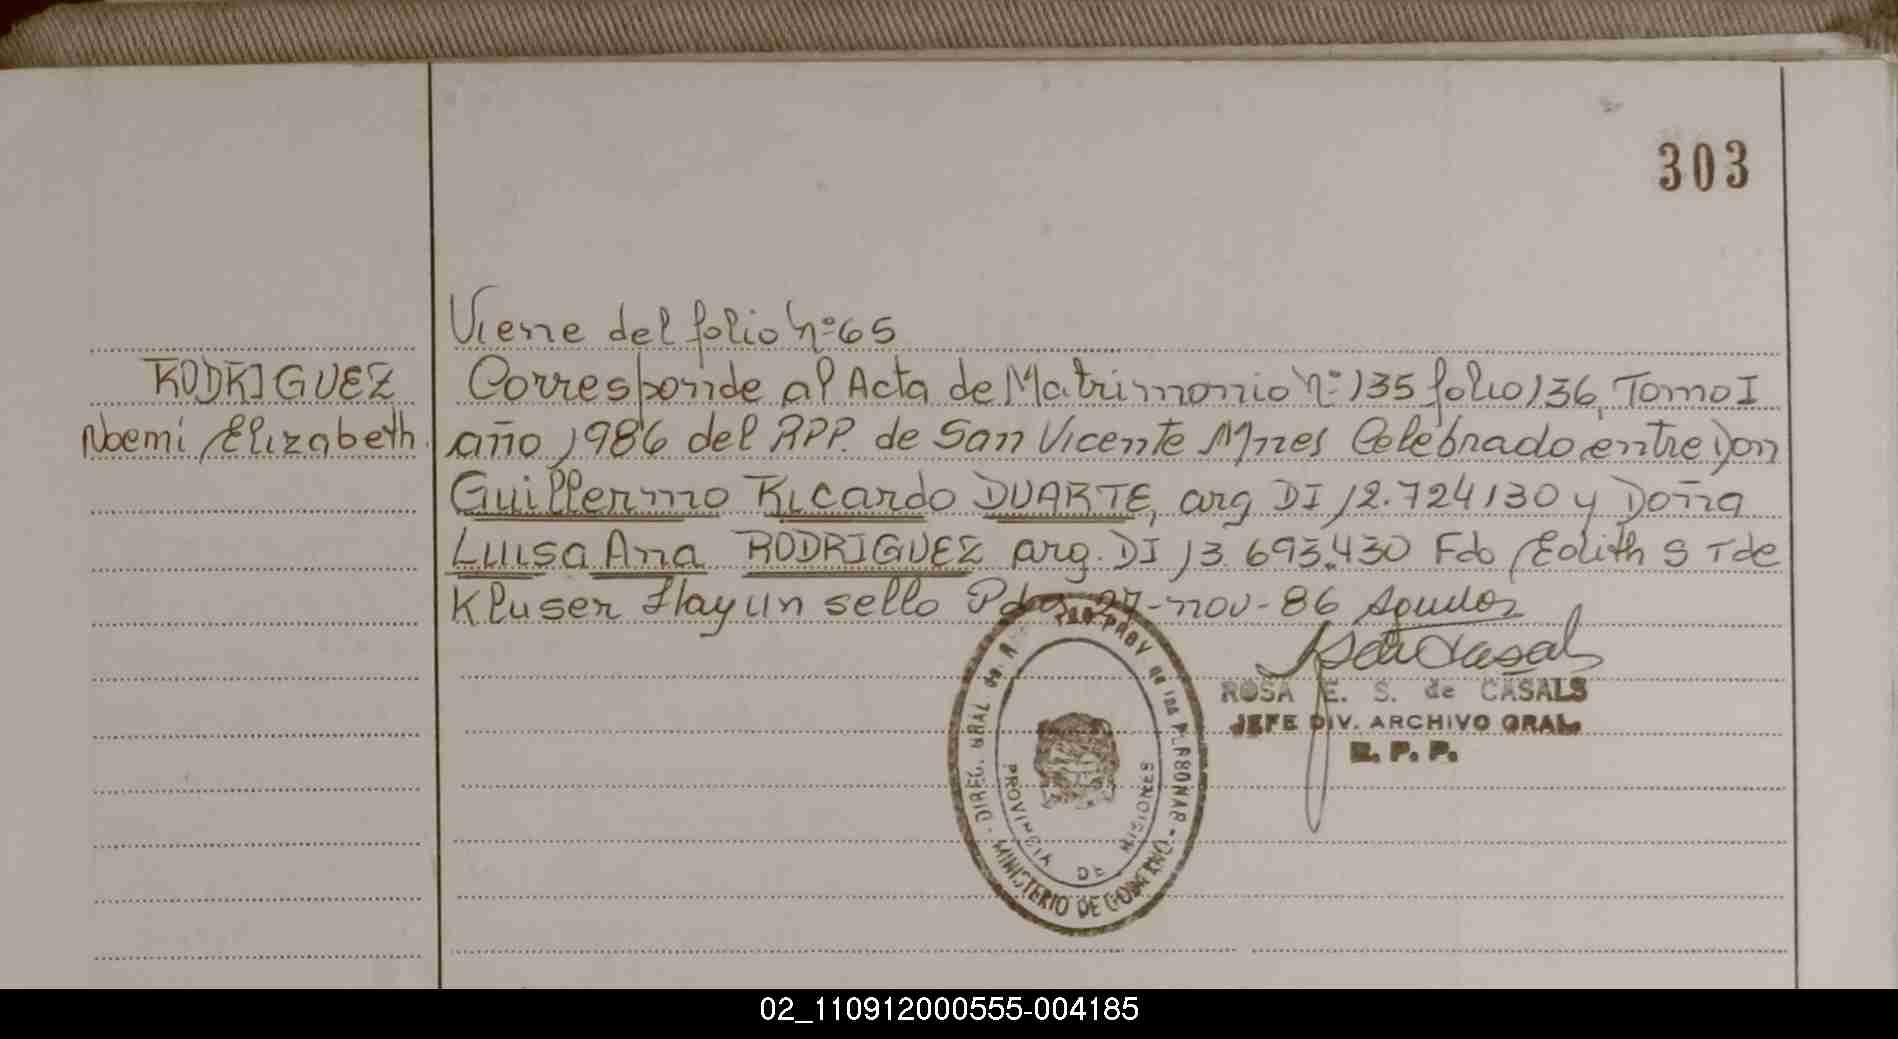 303
Viene del folio Nº 65
RODRIGUEZ
Noemi Elizabeth.
Corresponde al Acta de Matrimonio Nº 135 folio 136, Tomo I
año 1986 del RPP. de San Vicente Mnes Celebrado entre Don
Guillermo Ricardo DUARTE, arg DI 12.724130 y Doña
Luisa Ana RODRIGUEZ arg. DI 13 693.430 Fdo Edith S T de
Kluser Hay un sello Pdas 27-nov-86
ROSA E. S. de CASALS
JEFE DIV. ARCHIVO GRAL.
R. P. P.
DIREC. GRAL de de las PERSONAS
MINISTERIO DE GOBIERNO
PROVINCIA DE MISIONES
02_110912000555-004185